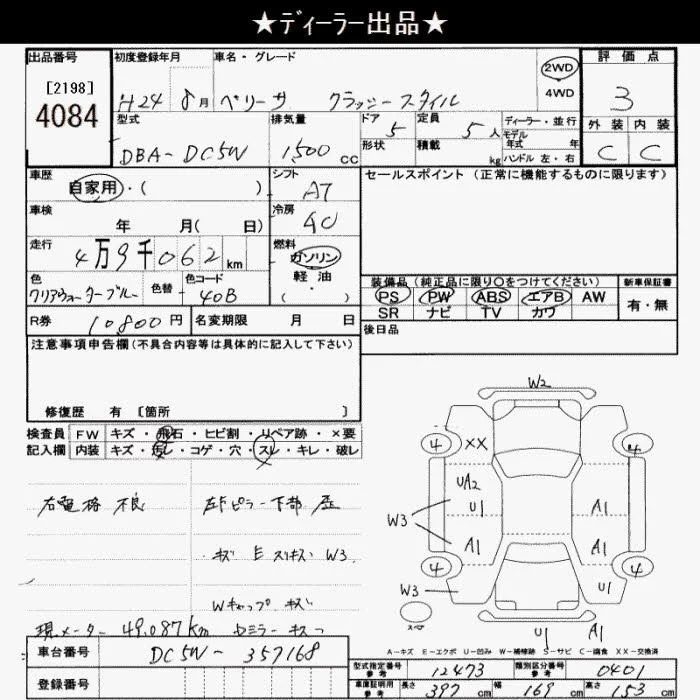 ★ディーラー出品★
出品番号 初度登録年月 車名・グレード 評価点
[2198] 2WD
4084 H24 8月 ベリーサ クラッシースタイル 4WD 3
型式 排気量 ドア 定員 ディーラー・並行 外装 内装
DBA-DC5W 1500cc 5 5人 モデル年式 年 C C
形状 積載 kg ハンドル 左・右
車歴 シフト セールスポイント(正常に機能するものに限ります)
自家用・( ) AT
車検 冷房
年 月( 日) AC
走行 燃料
4万9千062km ガソリン
色 色替 色コード 軽・油 装備品(純正品に限り○をつけてください) 新車保証書
クリアウォーターブルー 40B ( ) PS PW ABS エアB AW 有・無
SR ナビ TV カワ
R券 10800円 名変期限 月 日 後日品
注意事項申告欄(不具合内容等は具体的に記入して下さい)
修復歴 有 [箇所 ]
検査員 FW キズ・飛石・ヒビ割・リペア跡・×要
記入欄 内装 キズ・汚レ・コゲ・穴・スレ・キレ・破レ
右電格 不良 左Fピラー下部
キズ E スリキズ W3
Wキャップ キズ
現メーター 49.087km
W2
4 XX 4
UA2
U1 A1
W3
A1 A1
4 4
W3 U1
スペア
U1 A1
A-キズ E-エクボ U-凹み W-補修跡 S-サビ C-腐食 XX-交換済
車台番号 DC5W-357168
登録番号
型式指定番号 参考 12473 類別区分番号 参考 0401
車庫証明用 参考 長さ 397cm 幅 169cm 高さ 153cm